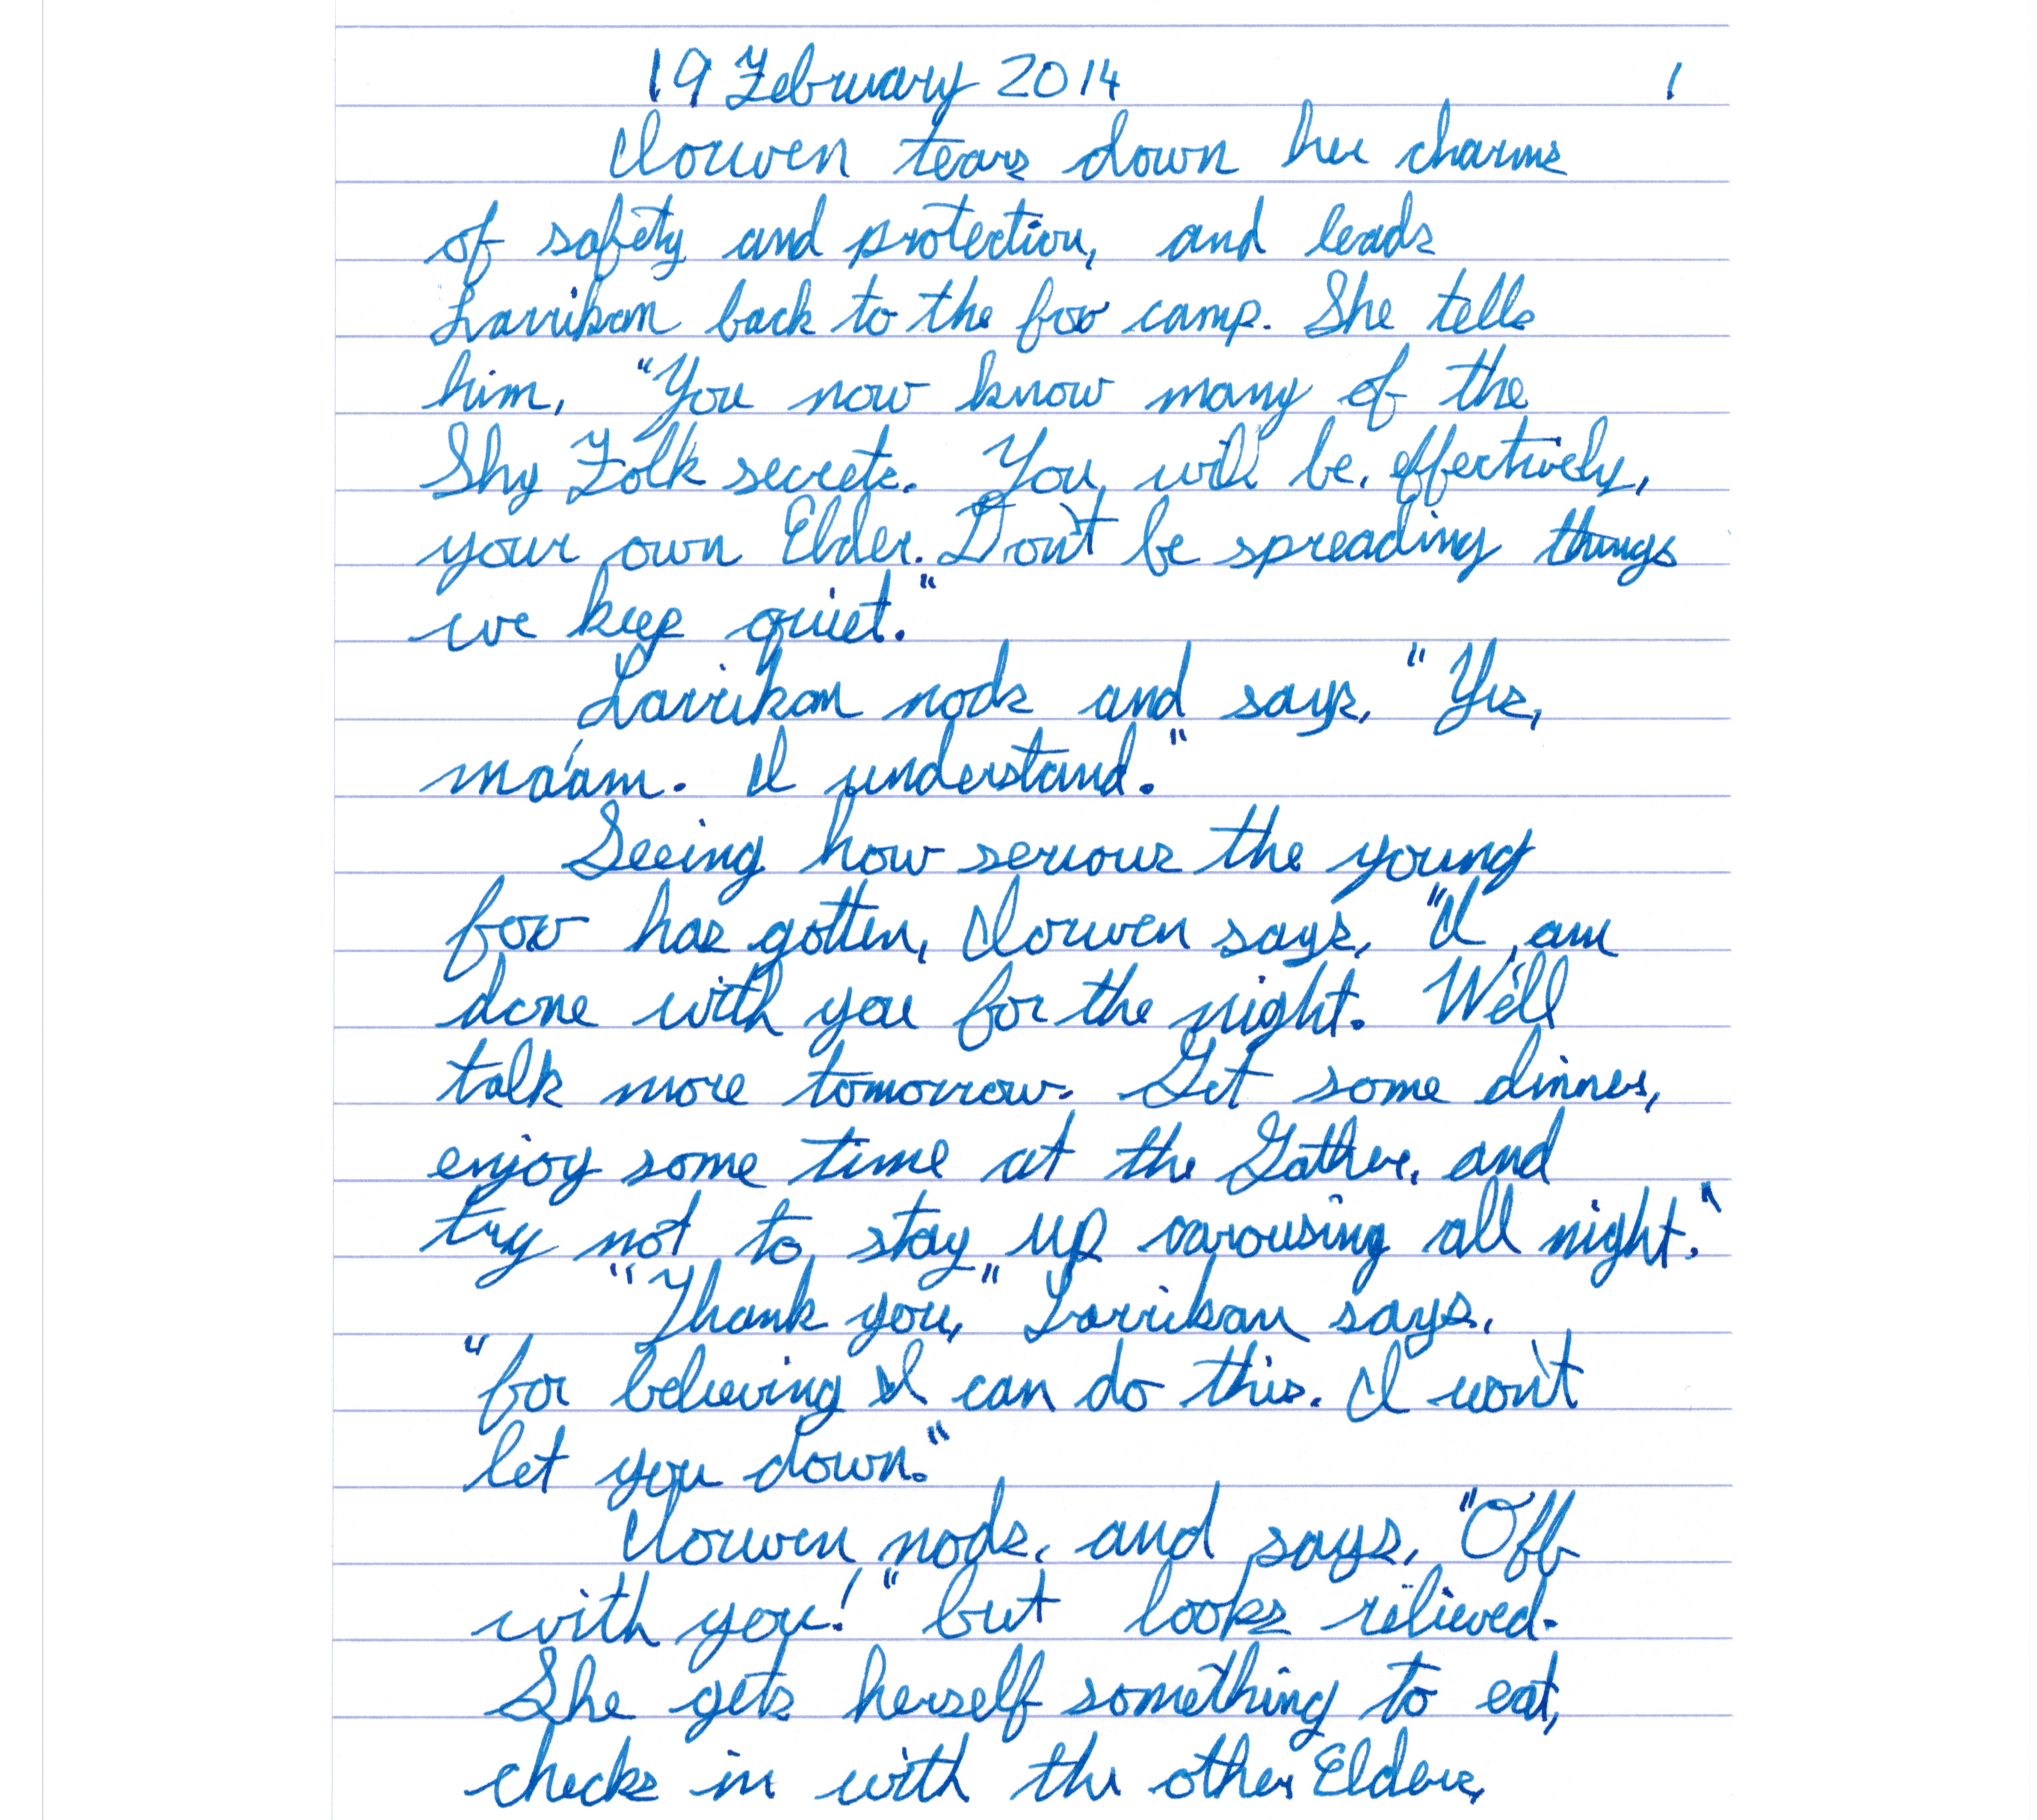 19 February 2014 1
Clouwen tears down her charms
of safety and protection, and leads
Larrikan back to the fox camp. She tells
him, "You now know many of the
Shy Folk secrets. You will be, effectively,
your own Elder. Don't be spreading things
we keep quiet."
Larrikan nods and says, "Yes,
ma'am. I understand."
Seeing how serious the young
fox has gotten, says, "I am
done with you for the night. We'll
talk more tomorrow. Get some dinner,
enjoy some time at the Gather, and
try not to stay up carousing all night."
"Thank you," Larrikan says,
"for believing I can do this. I won't
let you down."
nods, and says, "Off
with you!" but looks relieved.
She gets herself something to eat,
checks in with the other Elders,